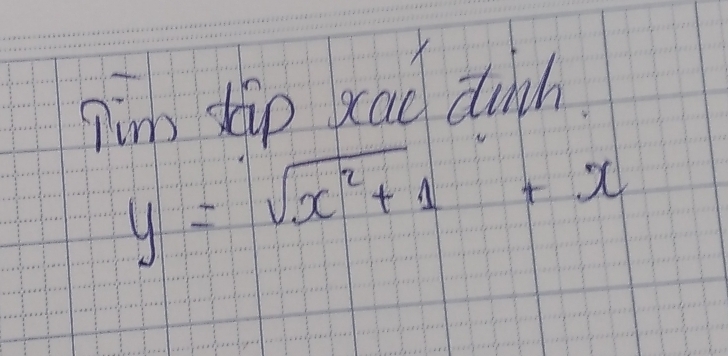 Tìm tập xác định.
y = √x² + 1 + x